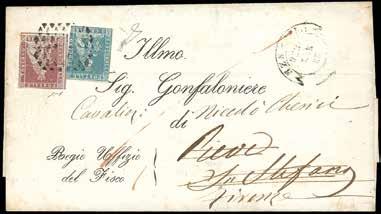 Illmo.
Sig. Gonfaloniere
Cavalier Niccolò
di
Regio Uffizio
del Fisco
Pieve
Sto Stefano
Firenze